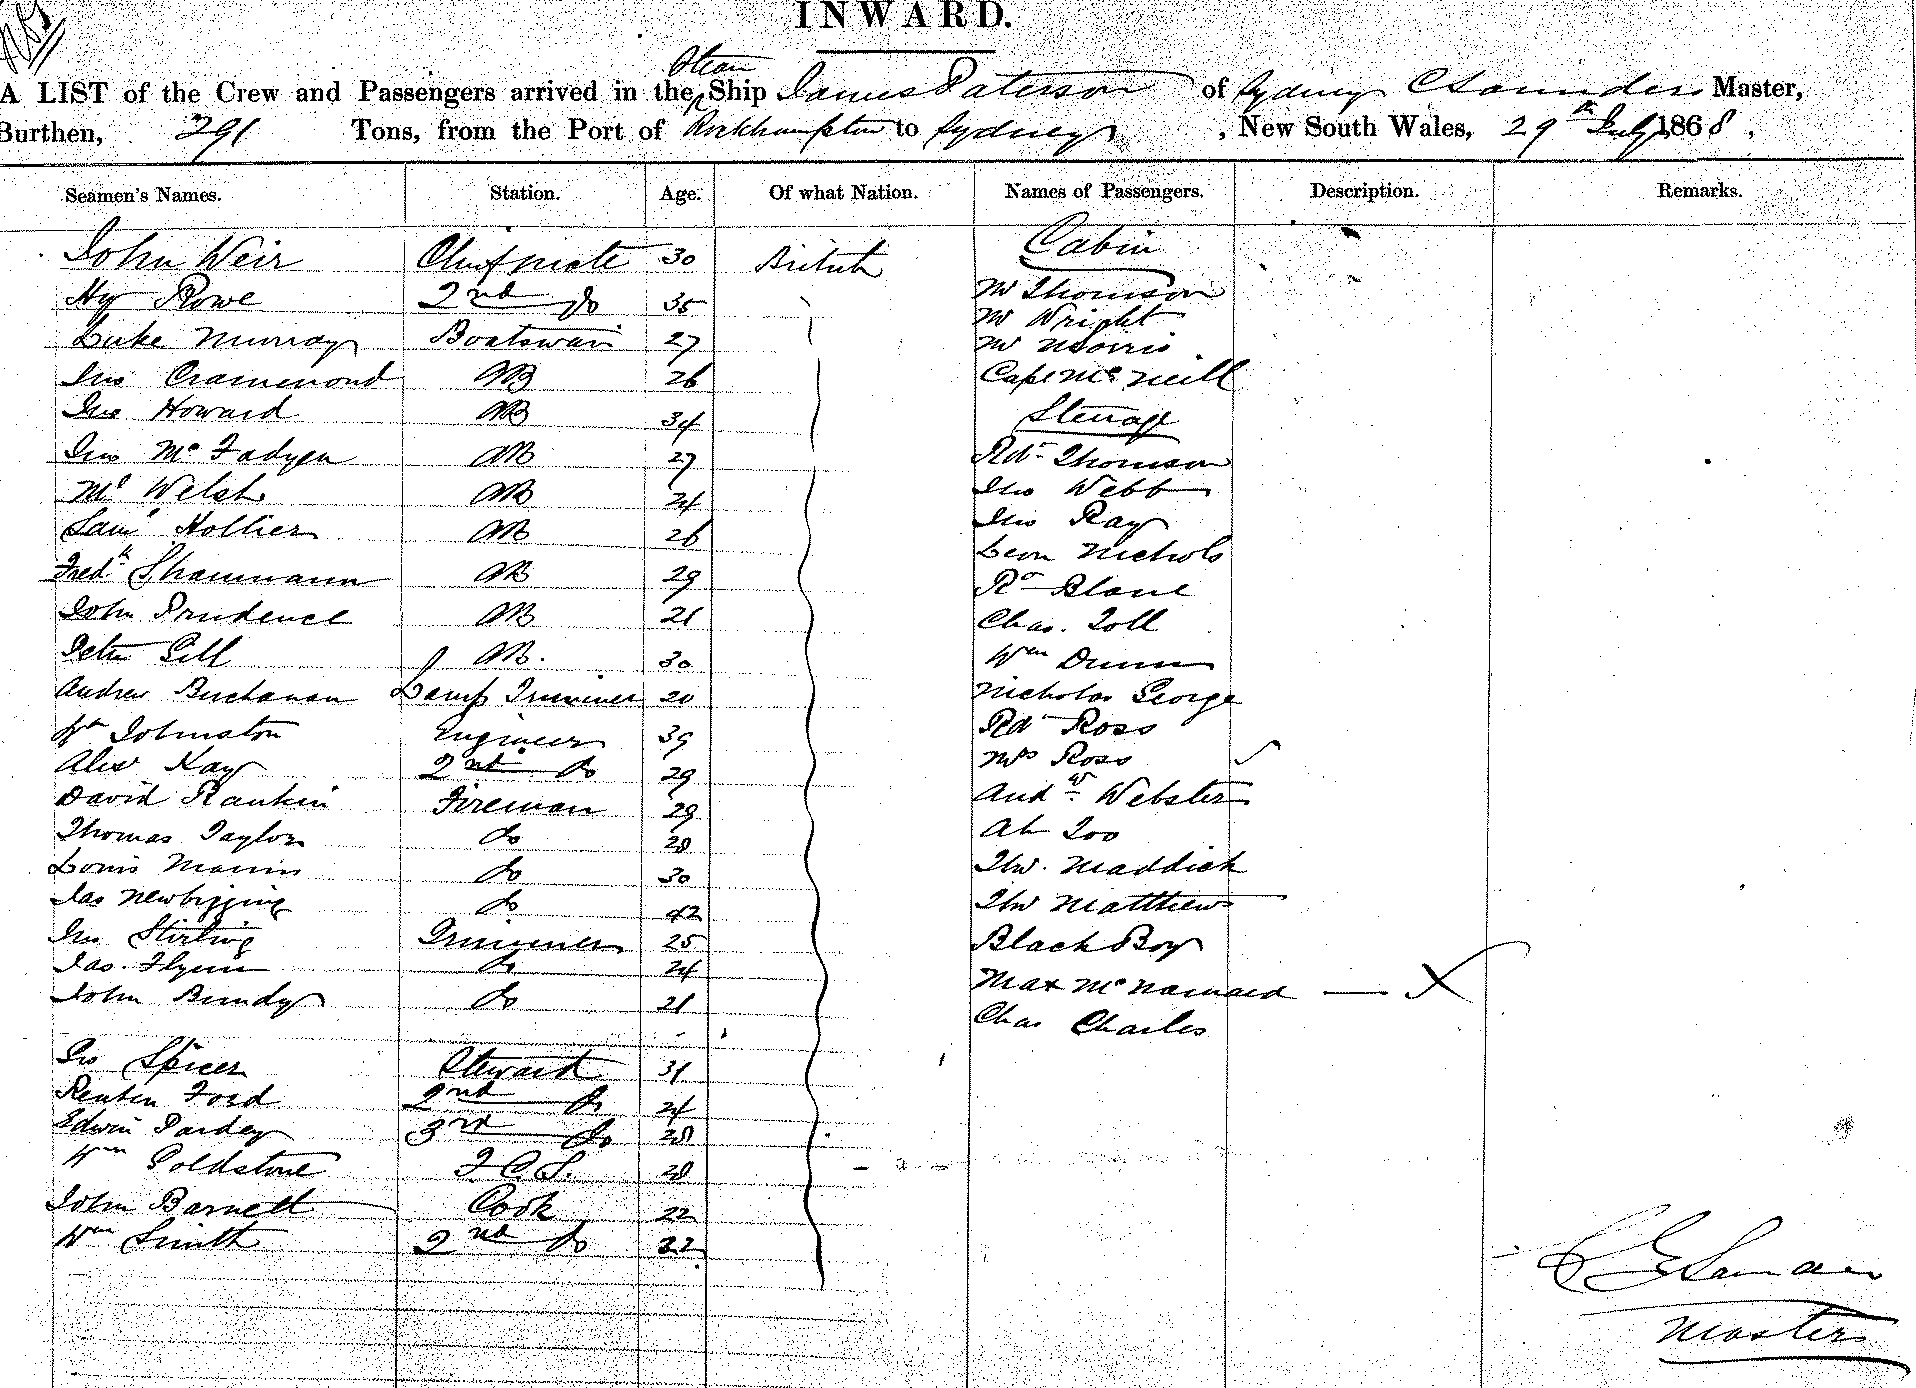 INWARD.
Steam
A LIST of the Crew and Passengers arrived in the Ship James Paterson of Sydney C Saunders Master,
Burthen, 291 Tons, from the Port of Rockhampton to Sydney, New South Wales, 29th July 1868.
Seamen's Names. Station. Age. Of what Nation. Names of Passengers. Description. Remarks.
John Weir Chief mate 30 British Cabin
Hy Rowe 2nd Do 35 Mr Thomson
Mr Wright
Luke Murray Boatswain 27 Mr Morris
Jno Crammond AB 26 Capt McNeill
Jno Howard AB 34 Steerage
Jno McFadyen AB 27 Rdt Thomson
Ml Welsh AB 24 Jno Webb
Saml Hollier AB 26 Jno Ray
Leon Nichols
Fredk AB 29 Rt Blane
John Prudence AB 21 Chas. Toll
Peter Gill AB. 30 Wm Dunn
Andrew Buchanan Lamp Trimmer 20 Nicholas George
Wm Johnston Engineer 39 Rdt Ross
Alex Kay 2nd Do 29 Mrs Ross
David Rankin Fireman 29 Andw Webster
Thomas Taylor Do 28 Ah Too
Louis Do 30 Tho. Maddick
Jas Newbigging Do 42 Tho Matthews
Jno Stirling Trimmer 25 Black Boy
Jas. Flynn Do 24 Max McNamara — X
John Bundy Do 21
Chas Charles
Jno Spicer Steward 31
Reuben Ford 2nd Do 24
Edwin Pardey 3rd Do 28
Wm Goldstone F.C.S. 28
John Barnett Cook 22
Wm Smith 2nd Do 22
Master